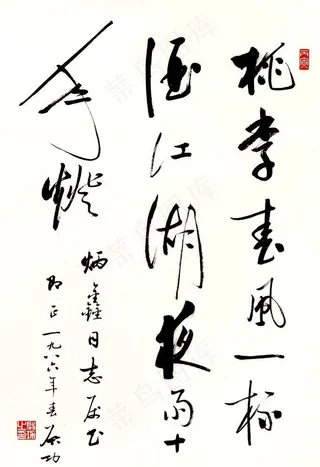 桃李春風一杯
酒江湖夜雨十
年燈
炳鑫同志属书
即正一九八六年春启功